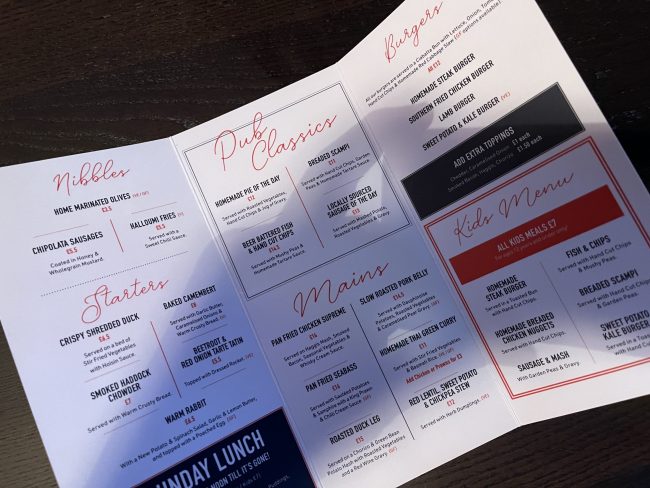 Nibbles
HOME MARINATED OLIVES
£3.5
CHIPOLATA SAUSAGES
£5.5
Coated in Honey &
Wholegrain Mustard.
HALLOUMI FRIES
£5.5
Served with a
Sweet Chilli Sauce.
Starters
CRISPY SHREDDED DUCK
£6.5
Served on a bed of
Stir Fried Vegetables
with Hoisin Sauce.
BAKED CAMEMBERT
Served with Garlic Butter,
Caramelised Onions &
Warm Crusty Bread.
SMOKED HADDOCK
CHOWDER
£7
Served with Warm Crusty Bread.
BEETROOT &
RED ONION TARTE TATIN
£5.5
Topped with Dressed Rocket.
WARM RABBIT
£6.5
With a New Potato & Spinach Salad, Garlic & Lemon Butter,
and topped with a Poached Egg.
SUNDAY LUNCH
NOON TILL IT'S GONE!
Puddings,
Pub
Classics
HOMEMADE PIE OF THE DAY
£13
Served with Roasted Vegetables,
Hand Cut Chips & Jug of Gravy.
BREADED SCAMPI
Served with Hand Cut Chips, Garden
Peas & Homemade Tartare Sauce.
BEER BATTERED FISH
& HAND CUT CHIPS
£14.5
Served with Mushy Peas &
Homemade Tartare Sauce.
LOCALLY SOURCED
SAUSAGE OF THE DAY
Served with Mashed Potato,
Roasted Vegetables & Gravy.
Mains
PAN FRIED CHICKEN SUPREME
Served on Haggis Hash, Smoked
Bacon, Seasonal Vegetables &
Whisky Cream Sauce.
SLOW ROASTED PORK BELLY
Served with Dauphinoise
Potatoes, Roasted Vegetables
& Caramelised Pear Gravy.
PAN FRIED SEABASS
£16
Served with Sautéed Potatoes,
& Samphire with a King Prawn
& Chilli Cream Sauce.
HOMEMADE THAI GREEN CURRY
£11
Served with Stir Fried Vegetables
& Basmati Rice.
Add Chicken or Prawns for £3
ROASTED DUCK LEG
£15
Served on a Chorizo & Green Bean
Potato Hash with Roasted Vegetables
and a Red Wine Gravy.
RED LENTIL, SWEET POTATO
& CHICKPEA STEW
£12
Served with Herb Dumplings.
Burgers
All our burgers are served in a Ciabatta Bun with Lettuce, Onion,
Hand Cut Chips & Homemade Red Cabbage Slaw (GF options available)
All £13
HOMEMADE STEAK BURGER
SOUTHERN FRIED CHICKEN BURGER
LAMB BURGER
SWEET POTATO & KALE BURGER (VE)
ADD EXTRA TOPPINGS
Cheddar, Caramelised Onion £1 each
Smoked Bacon, Haggis, Chorizo £1.50 each
Kids Menu
ALL KIDS MEALS £7
HOMEMADE
STEAK BURGER
Served in a Toasted Bun
with Hand Cut Chips.
FISH & CHIPS
Served with Hand Cut Chips
& Mushy Peas.
HOMEMADE BREADED
CHICKEN NUGGETS
Served with Hand Cut
Chips.
BREADED SCAMPI
Served with Hand Cut Chips
& Garden Peas.
SAUSAGE & MASH
With Garden Peas & Gravy.
SWEET POTATO
KALE BURGER
Served in a Toasted
with Hand Cut